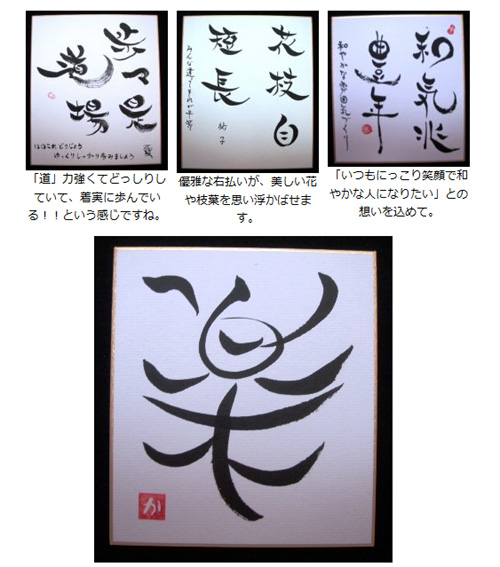 歩々是
道場
ほほこれどうじょう
ゆっくりしっかり歩みましょう
「道」力強くてどっしりし
ていて、着実に歩んでい
る！！という感じですね。
花枝自
短長
みんな違ってそれが平等
優雅な右払いが、美しい花
や枝葉を思い浮かばせま
す。
和気兆
豊年
和やかな雰囲気づくり
「いつもにっこり笑顔で和
やかな人になりたい」との
想いを込めて。
楽
か